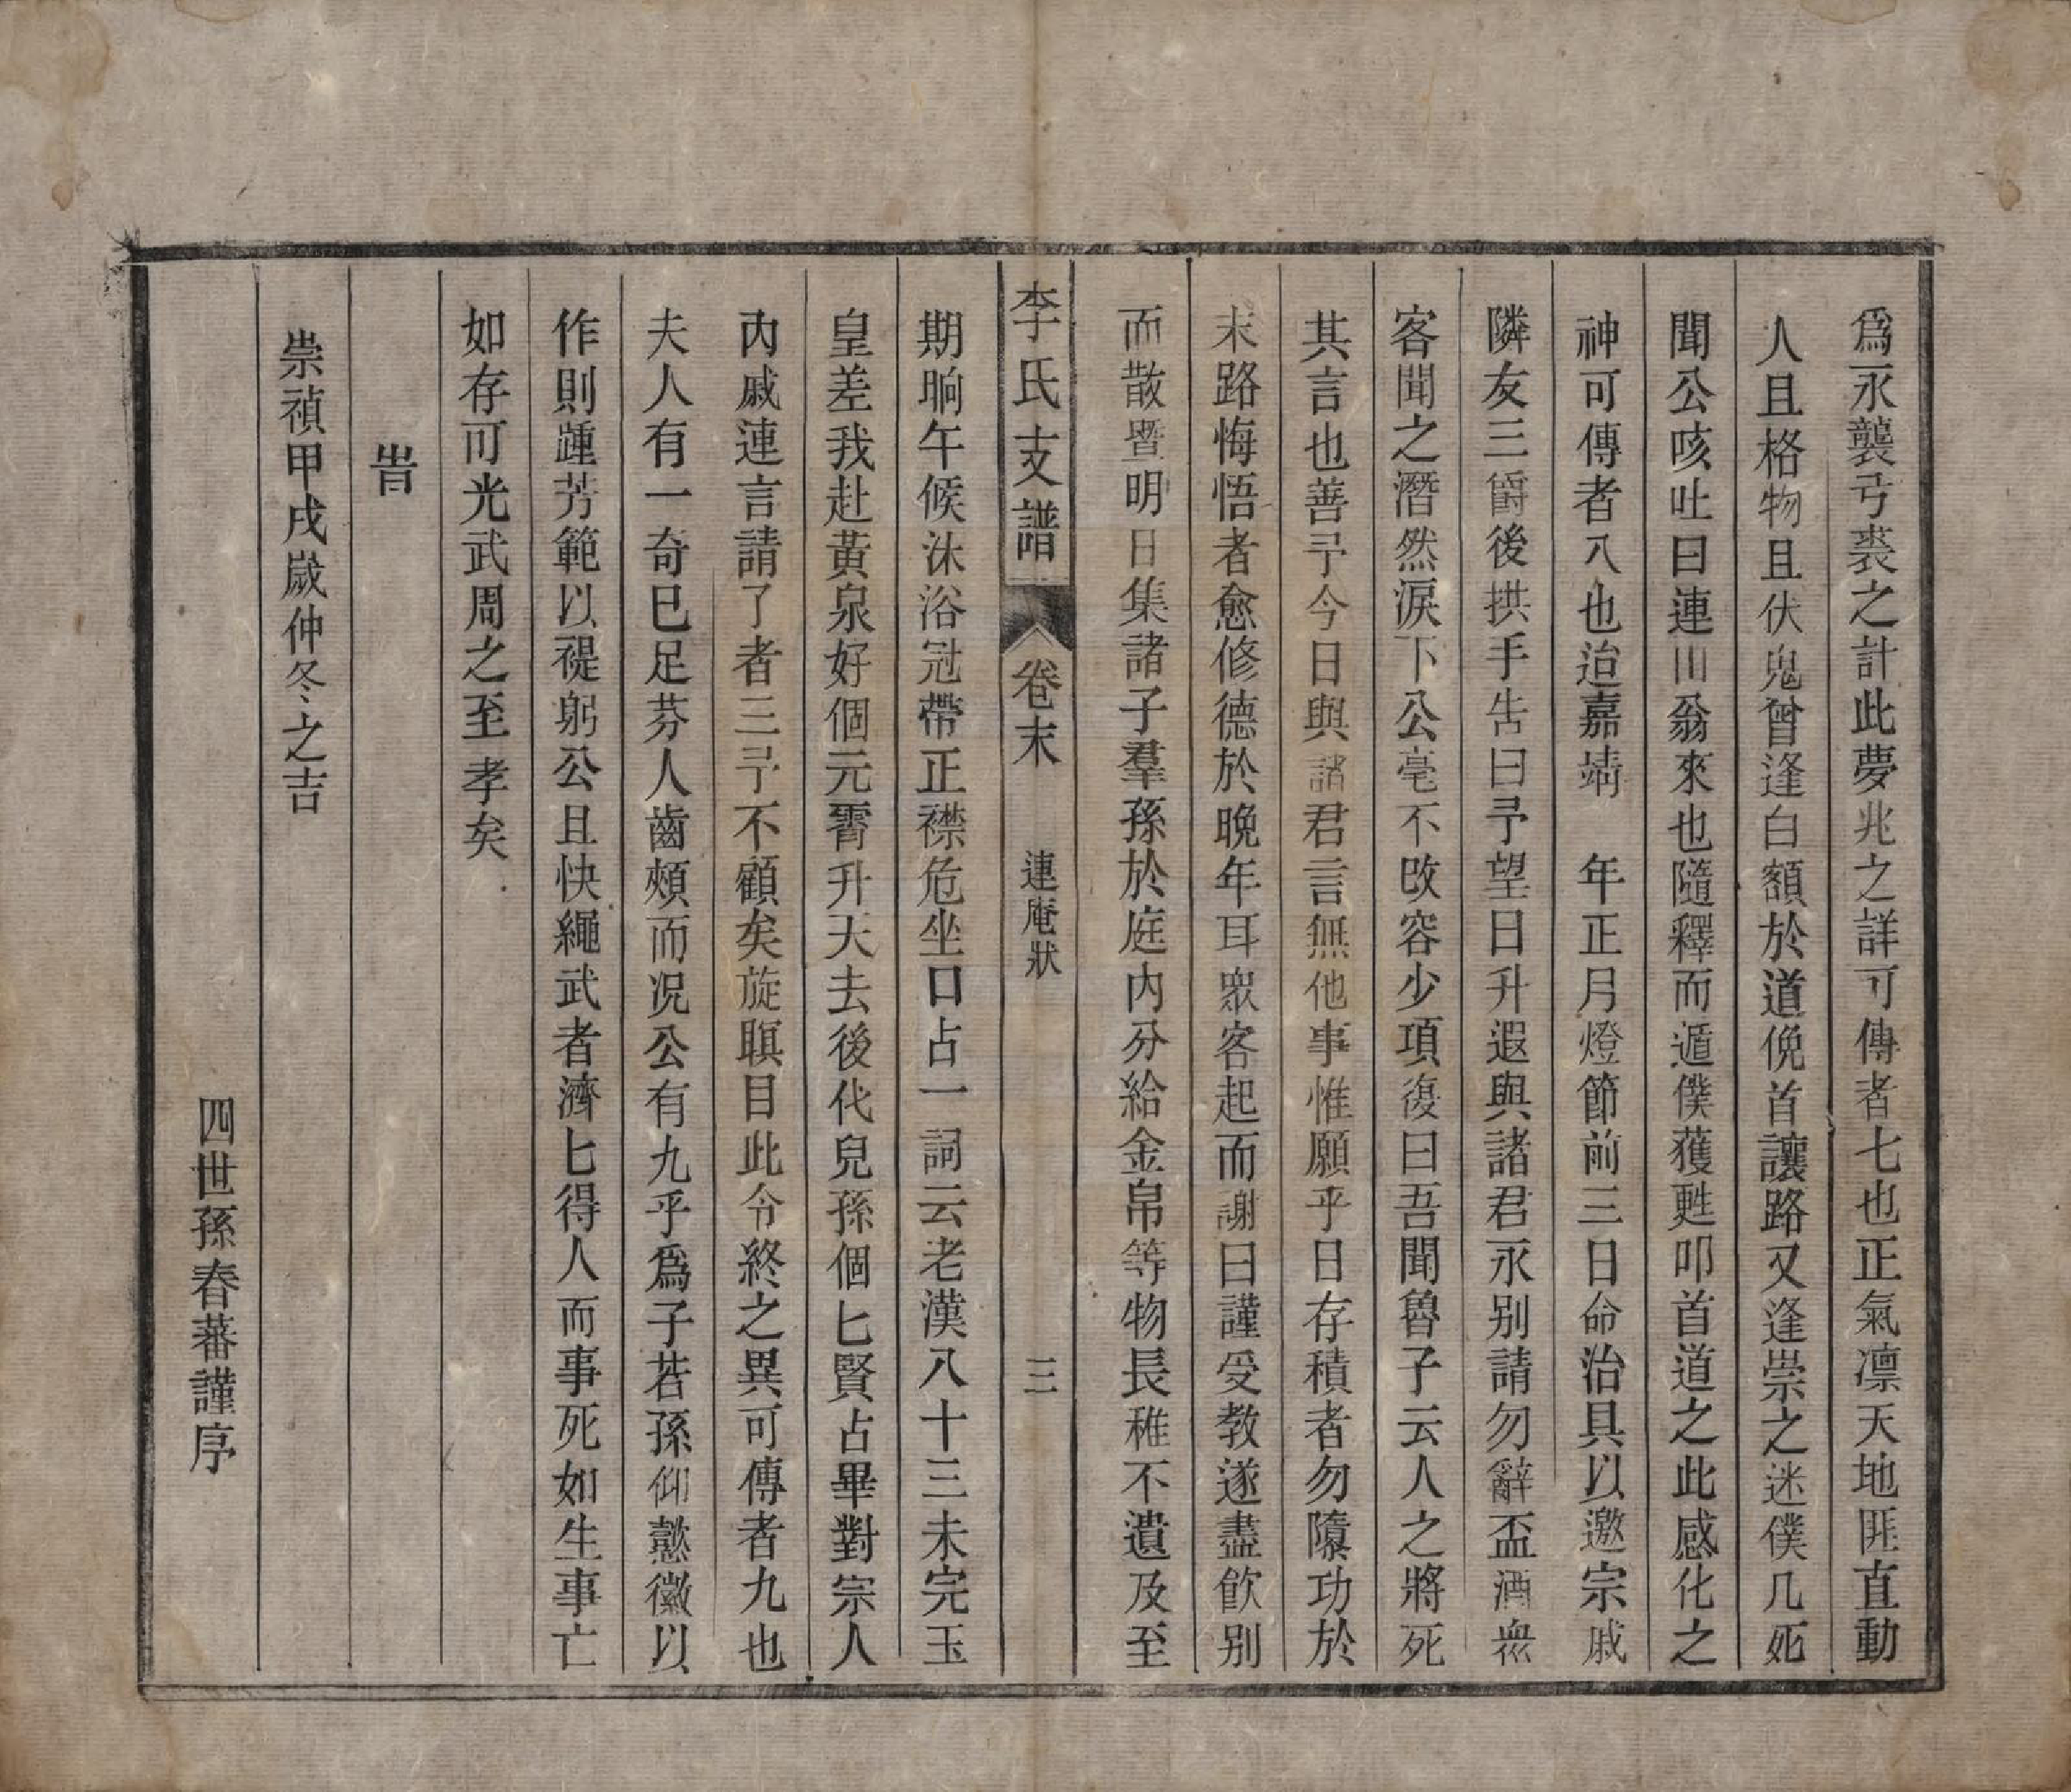 爲永襲弓裘之計此夢兆之詳可傳者七也正氣凛天地匪直動
人且格物且伏鬼曾逢白額於道俛首讓路又逢祟之迷僕几死
聞公咳吐曰連山翁來也隨釋而遁僕獲甦叩首道之此感化之
神可傳者八也迨嘉靖　年正月燈節前三日命治具以邀宗戚
隣友三爵後拱手告曰予望日升遐與諸君永别請勿辭盃酒衆
客聞之潛然淚下公毫不改容少項復曰吾聞魯子云人之將死
其言也善予今日與諸君言無他事惟願乎日存積者勿隳功於
末路悔悟者愈修德於晚年耳衆客起而謝曰謹受教遂盡飮别
而散曁明日集諸子羣孫於庭内分給金帛等物長稚不遺及至
李氏支譜　卷末　連庵狀　三
期晌午候沐浴冠帶正襟危坐口占一詞云老漢八十三未完玉
皇差我赴黃泉好個元霄升天去後代兒孫個匕賢占畢對宗人
内戚連言請了者三予不顧矣旋瞑目此令終之異可傳者九也
夫人有一奇已足芬人齒頰而况公有九乎爲子若孫仰懿徽以
作則踵芳範以禔躬公且快繩武者濟匕得人而事死如生事亡
如存可光武周之至孝矣
旹
崇禎甲戌歲仲冬之吉
四世孫春蕃謹序